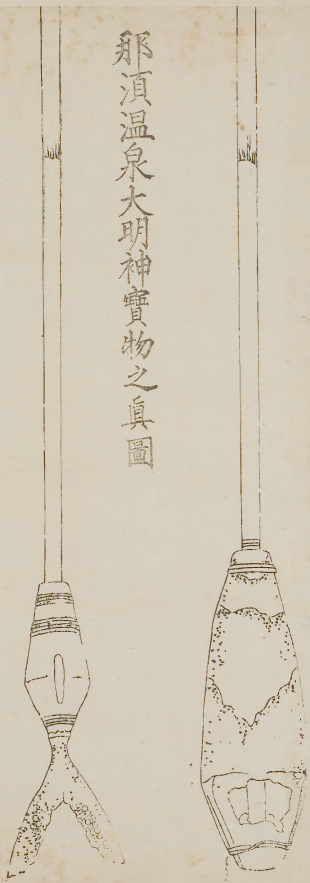 那須温泉大明神寳物之真圖